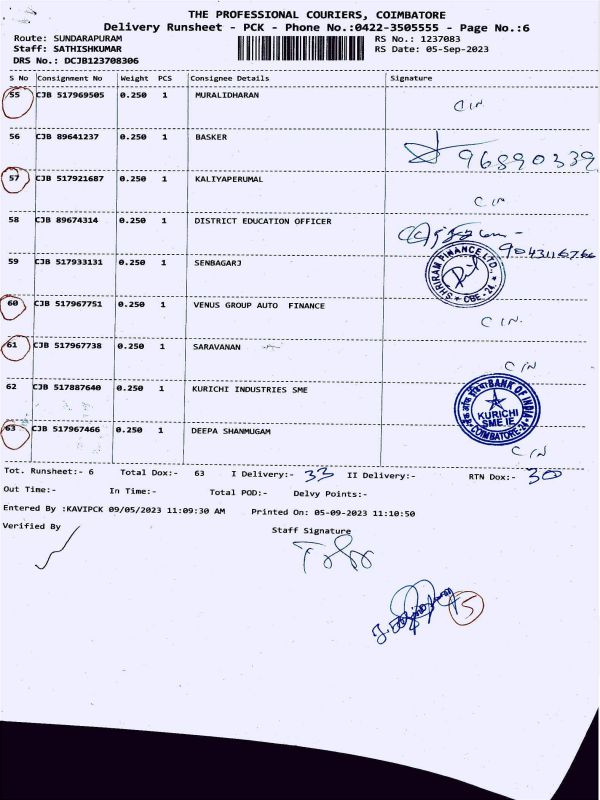 THE PROFESSIONAL COURIERS, COIMBATORE
Delivery Runsheet - PCK - Phone No.:0422-3505555 - Page No.:6
Route: SUNDARAPURAM RS No.: 1237083
Staff: SATHISHKUMAR RS Date: 05-Sep-2023
DRS No.: DCJB123708306
S No Consignment No Weight PCS Consignee Details Signature
55 CJB 517969505 0.250 1 MURALIDHARAN
C IN
56 CJB 89641237 0.250 1 BASKER
96890339
57 CJB 517921687 0.250 1 KALIYAPERUMAL
C IN
58 CJB 89674314 0.250 1 DISTRICT EDUCATION OFFICER
59 CJB 517933131 0.250 1 SENBAGARJ
SHRIRAM FINANCE LTD.,
CBE - 24
60 CJB 517967751 0.250 1 VENUS GROUP AUTO FINANCE
C IN.
61 CJB 517967738 0.250 1 SARAVANAN
C IN
62 CJB 517887640 0.250 1 KURICHI INDUSTRIES SME
BANK OF INDIA
KURICHI
SME IE
COIMBATORE-24
63 CJB 517967466 0.250 1 DEEPA SHANMUGAM
C IN
Tot. Runsheet:- 6 Total Dox:- 63 I Delivery:- 33 II Delivery:- RTN Dox:- 30
Out Time:- In Time:- Total POD:- Delvy Points:-
Entered By :KAVIPCK 09/05/2023 11:09:30 AM Printed On: 05-09-2023 11:10:50
Verified By Staff Signature
5